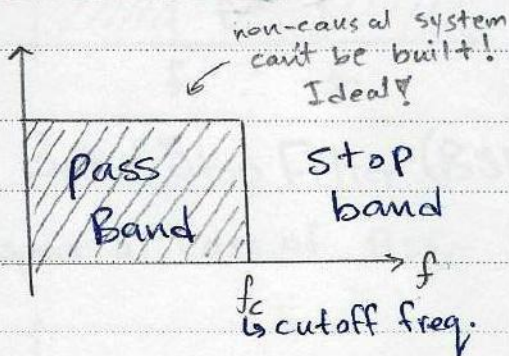 non-causal system
can't be built!
Ideal!
pass
Band
stop
band
f
fc
↳ cutoff freq.